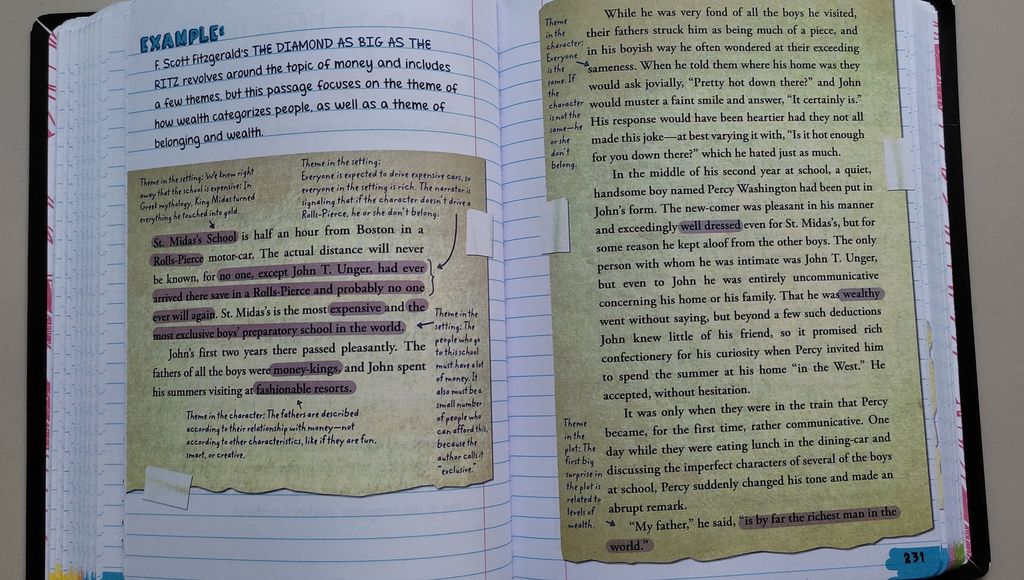 EXAMPLE:
F. Scott Fitzgerald's THE DIAMOND AS BIG AS THE
RITZ revolves around the topic of money and includes
a few themes, but this passage focuses on the theme of
how wealth categorizes people, as well as a theme of
belonging and wealth.
Theme in the setting: We know right
away that the school is expensive: In
Greek mythology, King Midas turned
everything he touched into gold.
Theme in the setting:
Everyone is expected to drive expensive cars, so
everyone in the setting is rich. The narrator is
signaling that if the character doesn't drive a
Rolls-Pierce, he or she don't belong.
St. Midas's School is half an hour from Boston in a
Rolls-Pierce motor-car. The actual distance will never
be known, for no one, except John T. Unger, had ever
arrived there save in a Rolls-Pierce and probably no one
ever will again. St. Midas's is the most expensive and the
most exclusive boys' preparatory school in the world.
John's first two years there passed pleasantly. The
fathers of all the boys were money-kings, and John spent
his summers visiting at fashionable resorts.
Theme in the
setting: The
people who go
to this school
must have a lot
of money. It
also must be a
small number
of people who
can afford this,
because the
author calls it
"exclusive."
Theme in the character: The fathers are described
according to their relationship with money—not
according to other characteristics, like if they are fun,
smart, or creative.
Theme
in the
character:
Everyone
is the
same. If
the
character
is not the
same—he
or she
don't
belong.
While he was very fond of all the boys he visited,
their fathers struck him as being much of a piece, and
in his boyish way he often wondered at their exceeding
sameness. When he told them where his home was they
would ask jovially, "Pretty hot down there?" and John
would muster a faint smile and answer, "It certainly is."
His response would have been heartier had they not all
made this joke—at best varying it with, "Is it hot enough
for you down there?" which he hated just as much.
In the middle of his second year at school, a quiet,
handsome boy named Percy Washington had been put in
John's form. The new-comer was pleasant in his manner
and exceedingly well dressed even for St. Midas's, but for
some reason he kept aloof from the other boys. The only
person with whom he was intimate was John T. Unger,
but even to John he was entirely uncommunicative
concerning his home or his family. That he was wealthy
went without saying, but beyond a few such deductions
John knew little of his friend, so it promised rich
confectionery for his curiosity when Percy invited him
to spend the summer at his home "in the West." He
accepted, without hesitation.
It was only when they were in the train that Percy
became, for the first time, rather communicative. One
day while they were eating lunch in the dining-car and
discussing the imperfect characters of several of the boys
at school, Percy suddenly changed his tone and made an
abrupt remark.
"My father," he said, "is by far the richest man in the
world."
Theme
in the
plot: The
first big
surprise in
the plot is
related to
levels of
wealth.
231